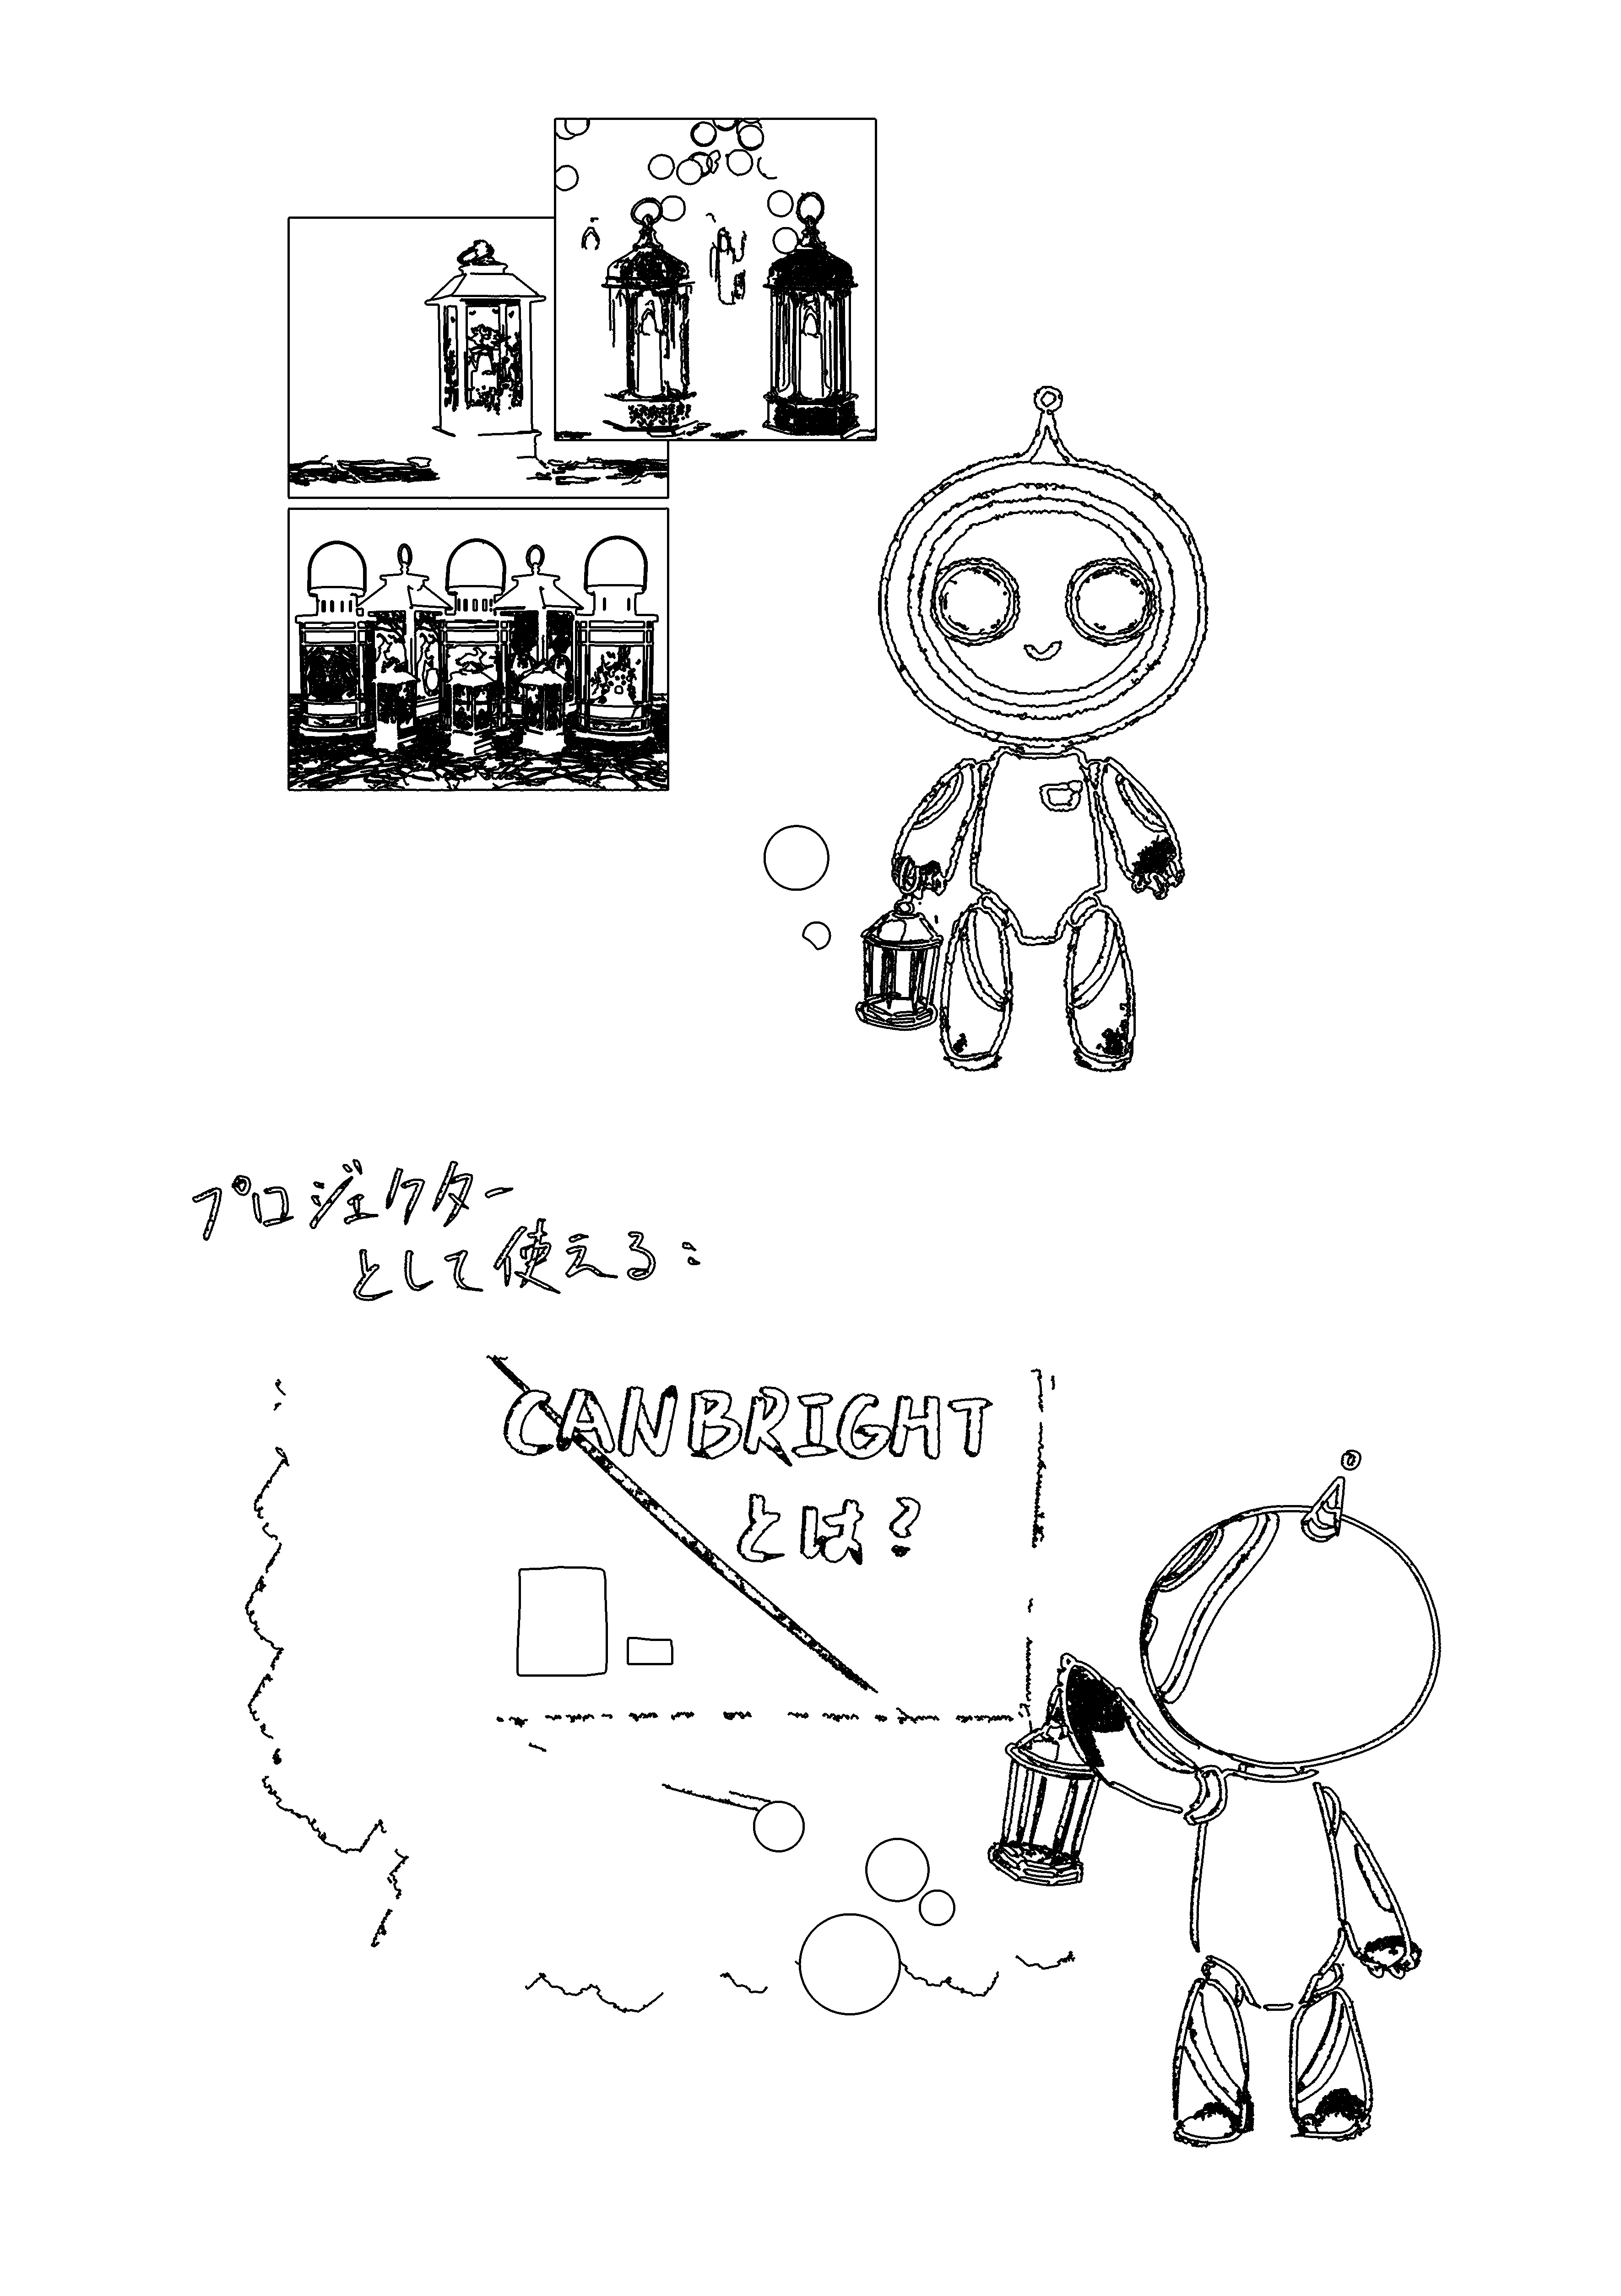 プロジェクター
として使える:
CANBRIGHT
とは?